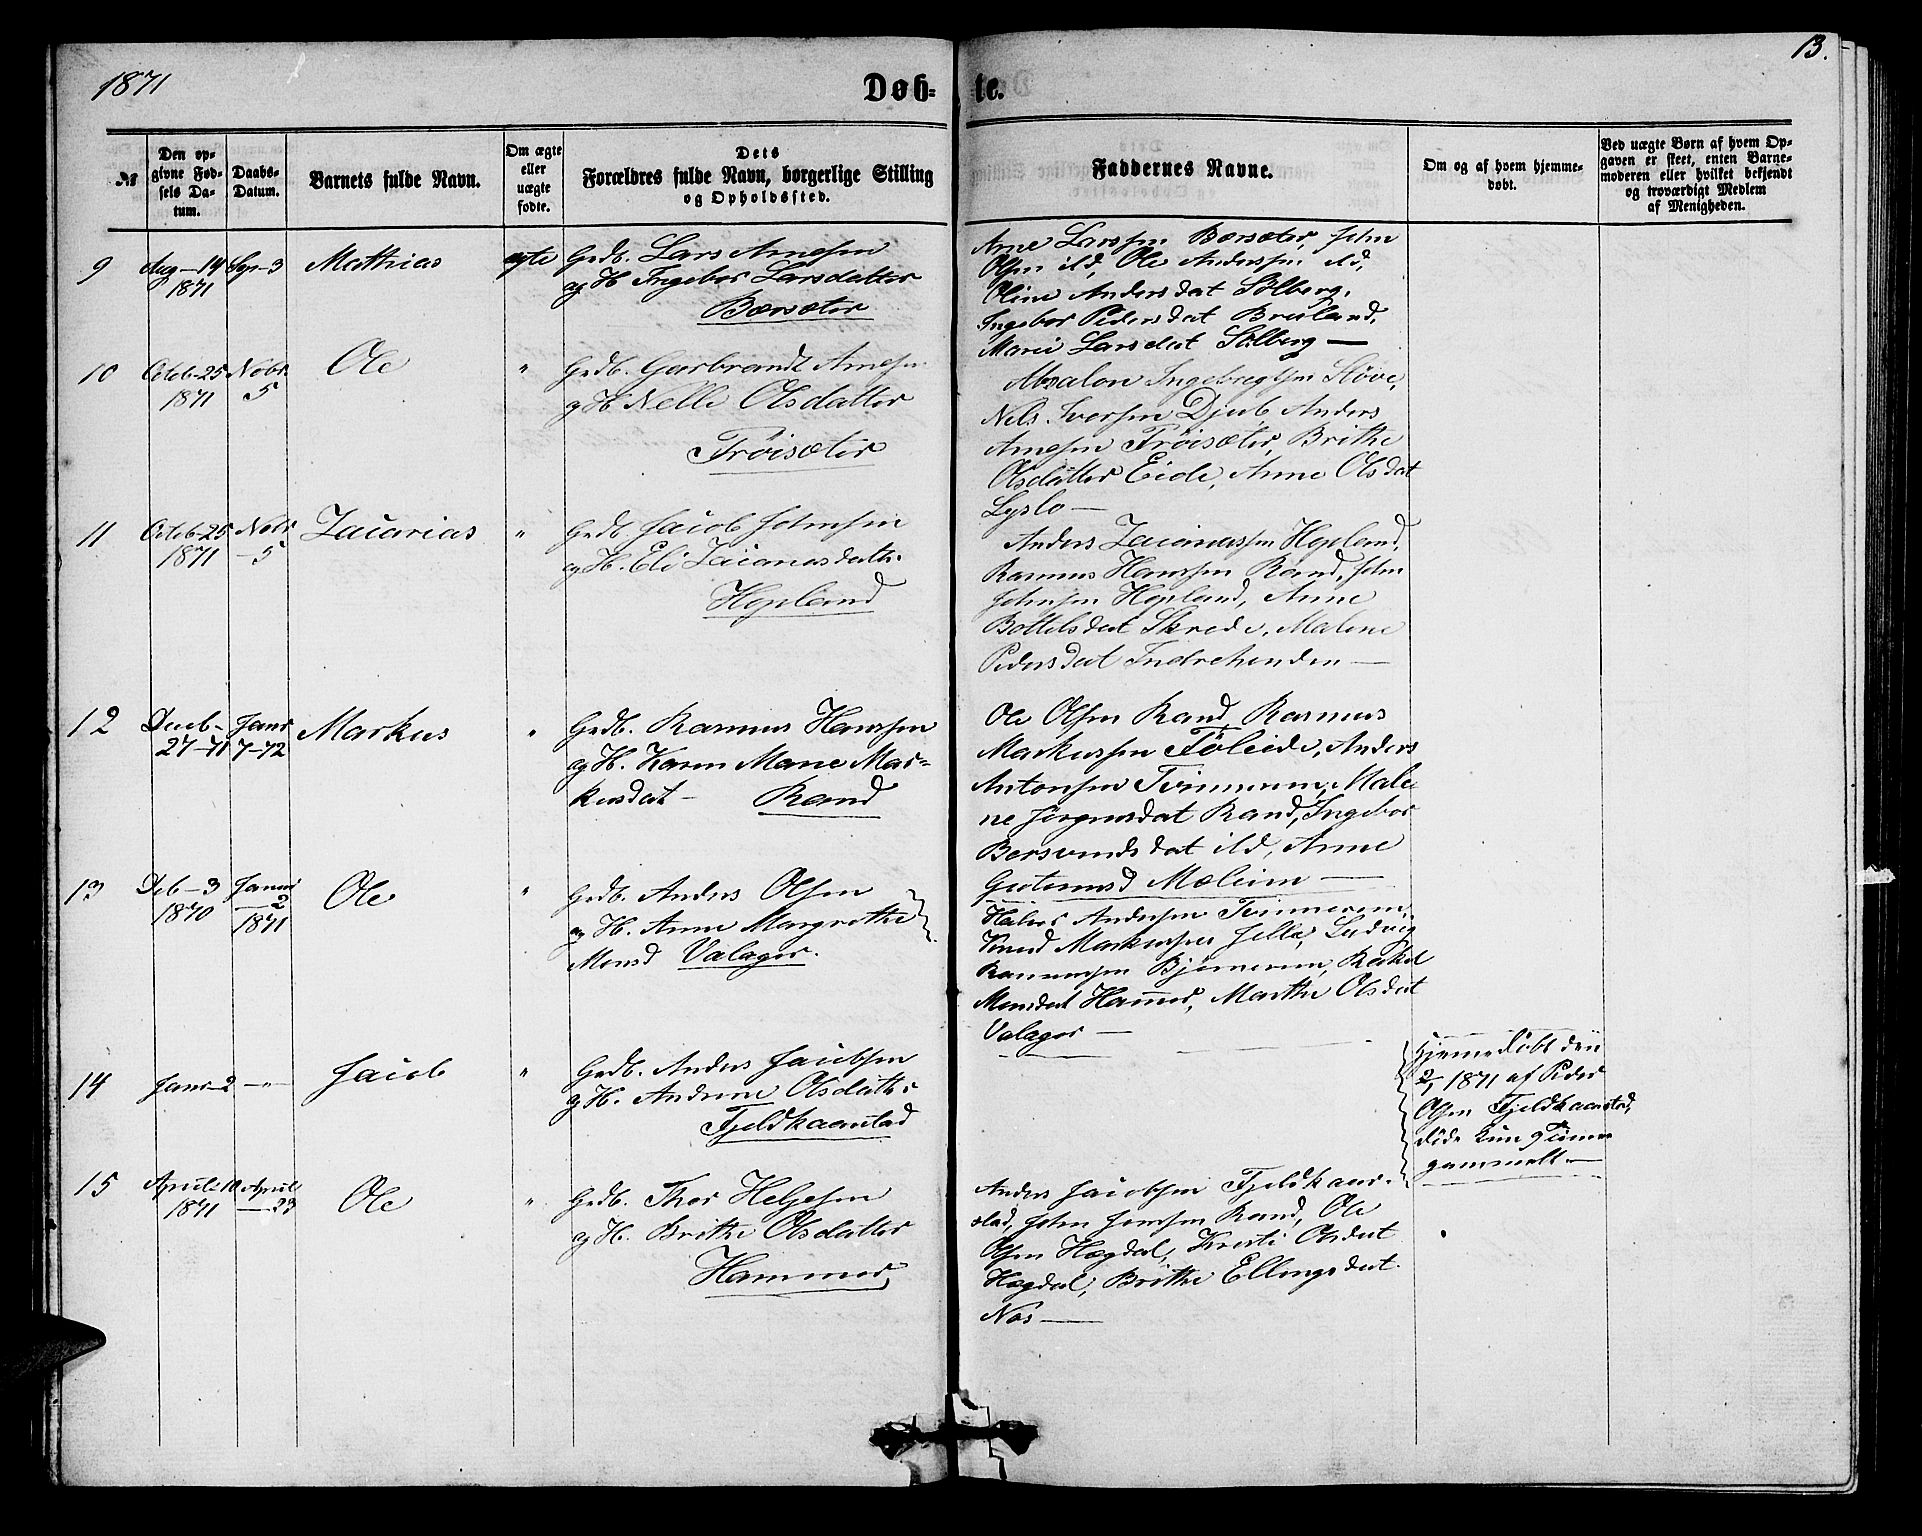 1871
Døb-
te.
13.
№
Den op-
givne Fød-
sels Da-
tum.
Daabs-
Datum.
Barnets fulde Navn.
Om ægte
eller
uægte
fødte.
Dets
Forældres fulde Navn, borgerlige Stilling
og Opholdssted.
Faddernes Navne.
Om og af hvem hjemme-
døbt.
Ved uægte Børn af hvem Op-
gaven er skeet, enten Barne-
moderen eller hvilket bekjendt
og troværdigt Medlem
af Menigheden.
9
Aug-14
1871
Sep-3
Mathias
ægte
Grdb. Lars Arnesen
og H. Ingebor Larsdatter
Børsæter
Arne Larssen Børsæter, John
Olsen ild, Ole Anderssen ild,
Oline Andersdat Solberg,
Ingebor Pedersdat Breiland,
Marie Larsdat Solberg —
10
Octob-25
1871
Nobr.
5
Ole
"
Grdb. Garbrandt Arnesen
og H. Nelle Olsdatter
Trøisæter
Absalon Ingebregtsen Støve,
Nels Iversen Djub, Anders
Arnesen Trøisæter, Brithe
Olsdatter Eide, Anne Olsdat
Lyslo —
11
Octob-25
1871
Nobr
-5
Zacarias
"
Grdb. Jacob Johnsen
og H. Eli Zacariasdatter
Hopland
Anders Zacariassen Hopland,
Rasmus Hanssen Rand, John
Johnsen Hopland, Anne
Bottelsdat Skrede, Malene
Pedersdat Indrehenden —
12
Deceb-
27-71
Janr
7-72
Markus
"
Grdb. Rasmus Hanssen
og H. Karen Marie Mar-
kusdat - Rand
Ole Olsen Rand, Rasmus
Markussen Føleide, Anders
Antonsen Tvinnerem, Male
ne Jørgensdat Rand, Ingebor
Bersvendsdat ild, Anne
Gutormsd Mæleim —
13
Deb-3
1870
Januar
-2
1871
Ole
"
Grdb. Anders Olsen
og H. Anne Margrethe
Monsd Valager.
Halvor Andersen Tvinnerem,
Knud Markussen Jelle, Ludvig
Rasmussen Bjørnerem, Rakel
Monsdat Hammer, Marthe Olsdat
Valager —
14
Janr-2
-"-
Jacob
"
Grdb. Anders Jacobsen
og H. Andrine Olsdatter
Fjeldkaarstad
Hjemmedøbt den
2/1 1871 af Peder
Olsen Fjeldkaarstad,
døde kun 9 Timer
gammelt —
15
April-10
1871
April
—23
Ole
"
Grdb. Thor Helgesen
og H. Brithe Olsdatter
Hammer
Anders Jacobsen Fjeldkaar-
stad, John Jonssen Rand, Ole
Olsen Hægdal, Kristi Olsdat
Hægdal, Brithe Ellingsdat
Nos —